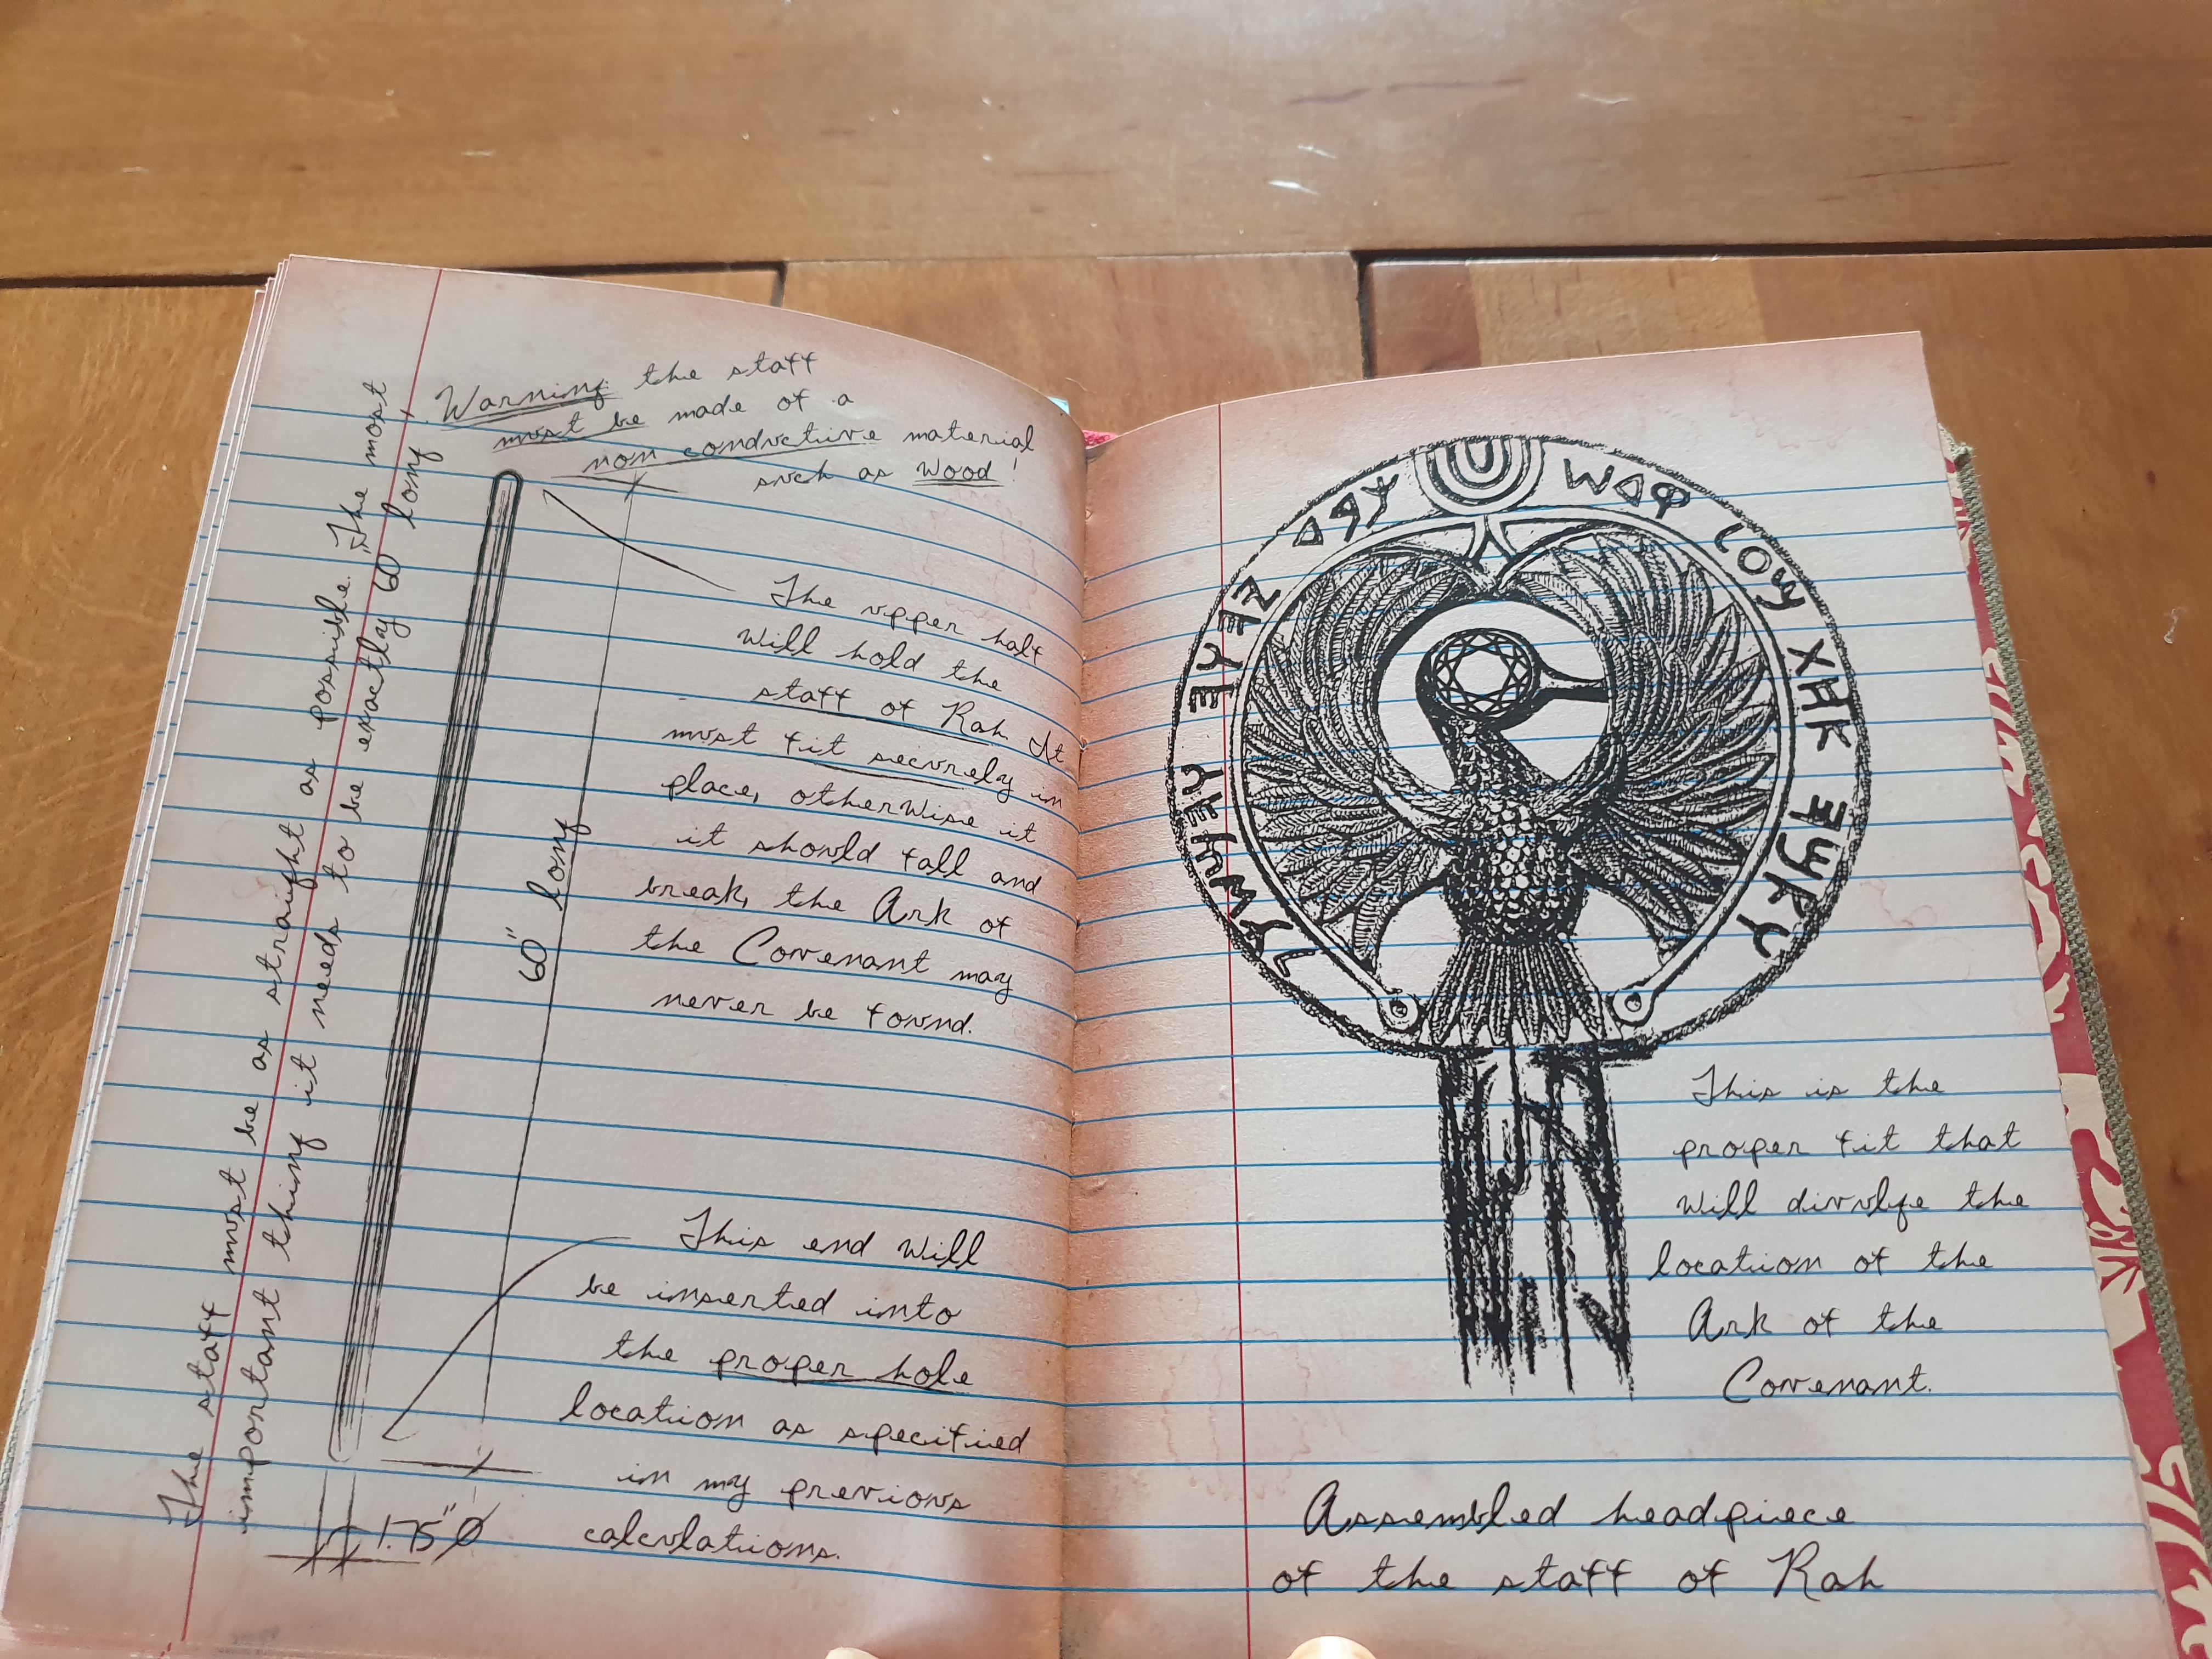 The staff must be as straight as possible. The most
important thing it needs to be exactly 60" long.
Warning the staff
must be made of a
non conductive material
such as wood!
The upper half
will hold the
staff of Rah It
must fit securely in
place, otherwise it
it should fall and
break, the Ark of
the Covenant may
never be found.
60" long
This end will
be inserted into
the proper hole
location as specified
in my previous
calculations.
1.75"Ø
This is the
proper fit that
will divulge the
location of the
Ark of the
Covenant.
Assembled headpiece
of the staff of Rah